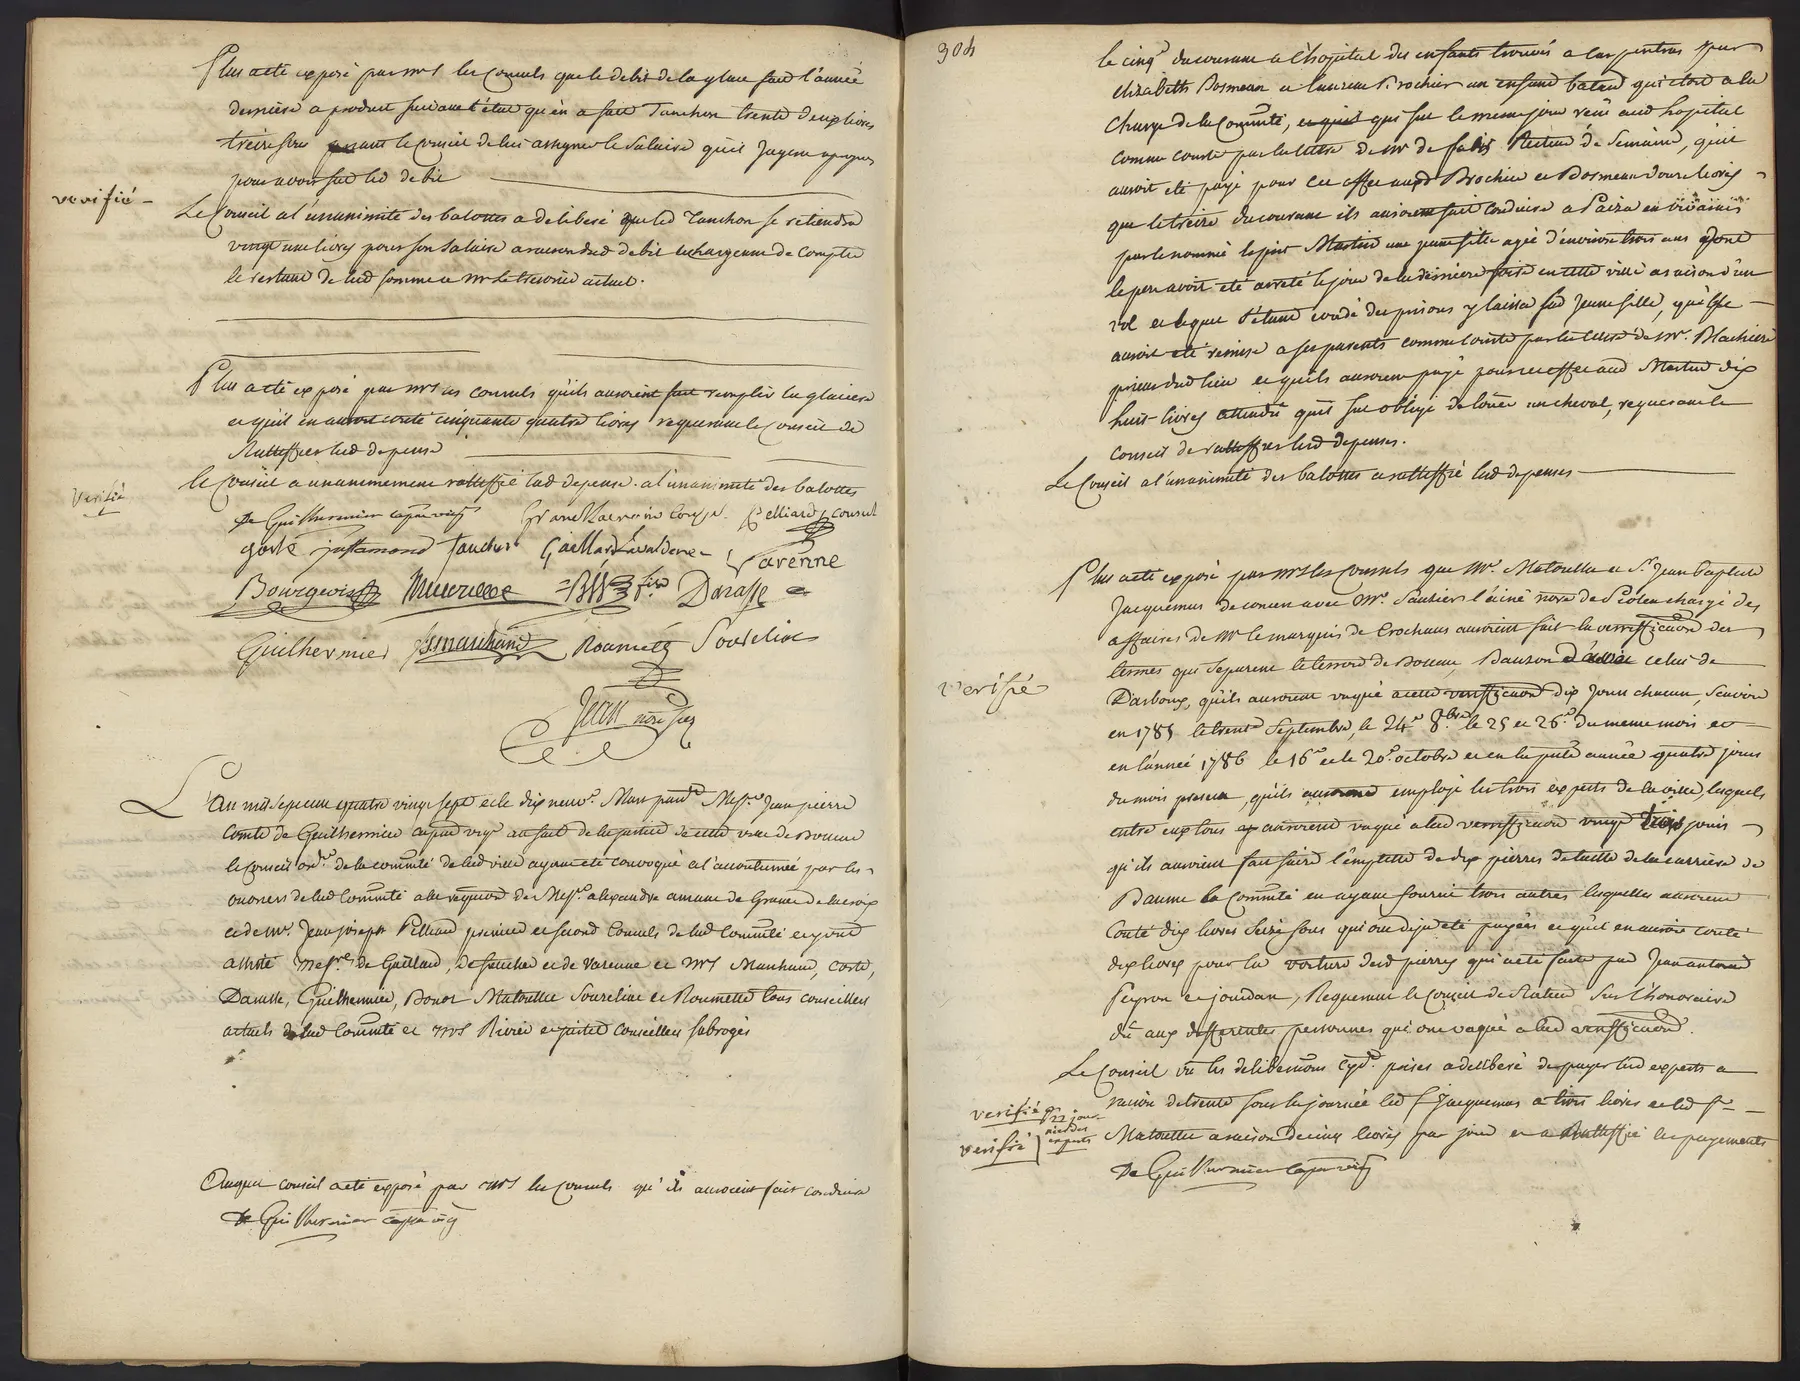 Plus a été exposé par mrs les Consuls que le debit de la glace fait l'année
derniere a produit suivant l'état qu'en a fait Tanchon trente deux livres
treize sous priant le Conseil de lui assigner le Salaire qu'il Jugera apropos
pour avoir fait led debit
verifié -
Le Conseil a l'unanimité des balottes a deliberé que led Tanchon se retiendra
vingt une livres pour son Salaire a raison dud debit le chargeant de Compter
le restant de lad somme a Mr le tresorier actuel.
Plus a été exposé par mrs les consuls qu'ils auroient fait remplir la glaciere
et qu'il en auroit couté cinquante quatre livres requerant le Conseil de
Rattiffier lad depense
verifié
le Conseil a unanimement rattiffié lad depense. a l'unanimité des balottes
De Guilhermier capne vig
Pelliard consul
gosté justamond fauchier Gaillard Lavaldene
Varenne
Bourgeois
fils Darasse
Guilhermier J. marchand Roumette Sourelias
Jean notre secre
L'An mil sept cent quatre vingt sept et le dix neuf. Mars pardt Messre Jean pierre
Comte de Guilhermier capne vigr au fait de la justice de cette ville de Bollene
le Conseil ordre de la comunité de lad ville ayant été convoqué a l'accoutumée par les
onorers de lad Comunité a la requete de Messre alexandre amant de Granet de lacroix
et de mr. Jean joseph Pelliard premier et second Consuls de lad Comunité et y ont
assisté messres de Gaillard, de faucher et de Varenne et mrs Marchand, Costé,
Darasse, Guilhermier, Bonot Matoullie Sourelias et Roumette tous conseillers
actuels de lad Comunité et mrs Rivier et justet Conseillers subrogés
Auquel conseil a eté exposé par mrs les Consuls qu'ils auroient fait conduire
De Guilhermier capne vig
304
le cinqe du courant a l'hopital des enfants trouvés a Carpentras par
elizabeth Bosmean et laurent Brochier un enfant batard qui etoit a la
charge de la Comunité, et qui fut le meme jour reçu aud hopital
comme conste par la lettre de Mr de fabis Recteur de Semaine, qu'il
auroit eté payé pour cet effet auxd Brochier et Bosmean douze livres
que le treize du courant ils auroient fait conduire a Laira en vivarais
par le nommé le petit Martin une jeune fille agée d'environ trois ans dont
le pere avoit eté arreté le jour de la derniere foire en cette ville a raison d'un
vol et lequel s'etant evadé des prisons y laissa sad jeune fille, qu'elle
auroit eté remise a ses parents comme conste par la lettre de Mr. Blachiere
prieur dud lieu et qu'ils auroient payé pour cet effet aud Martin dix
huit livres attendu qu'il fut obligé de louer un cheval, requerant le
conseil de rattiffier lesd depenses.
Le Conseil a l'unanimité des balottes a rattiffié lesd depenses
Plus a eté exposé par mrs les Consuls que Mr. Matoullie et Sr. Jean baptiste
Jacquemus de concert avec Mr. Sautier l'ainé notre de Piolenc chargé des
affaires de Mr le marquis de Crochans auroient fait la veriffication des
termes qui Separent le terroir de Bollene, Bauzon d'avec celui de
Darboux, qu'ils auroient vaqué a cette veriffication dix jours chacun, Scavoir
verifié
en 1785 le trente Septembre, le 24e 8bre le 25 et 26e du meme mois et
en l'année 1786 le 16e et le 20e octobre et en la pnte année quatre jours
du mois present, qu'ils auroient employé les trois experts de la ville, lesquels
entre eux tous auroient vaqué a lad veriffication vingt trois jours
qu'ils auroient fait faire l'emplette de dix pierres de taille de la carriere de
Baume la Comunité en ayant fourni trois autres lesquelles auroient
Couté dix livres seize sous qui ont deja eté payées et qu'il en auroit couté
dix livres pour la voiture desd pierres qui a eté faite par Jean antoine
Peyron et jourdan, Requerant le Conseil de Statuer sur l'honoraire
dû aux differentes personnes qui ont vaqué a lad veriffication.
Le Conseil vu les deliberations cydt prises a deliberé de payer lesd experts a
raison de trente sous la journée led Sr Jacquemus a trois livres et led Sr
verifié p 22 jour-
nées des
experts
verifié
Matoullie a raison de cinq livres par jour et a Rattiffié les payements
De Guilhermier capne vig